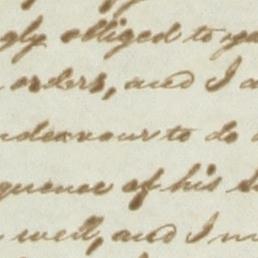 gly obliged to you
orders, and I a
ndeavour to do
quence of his
well, and I m